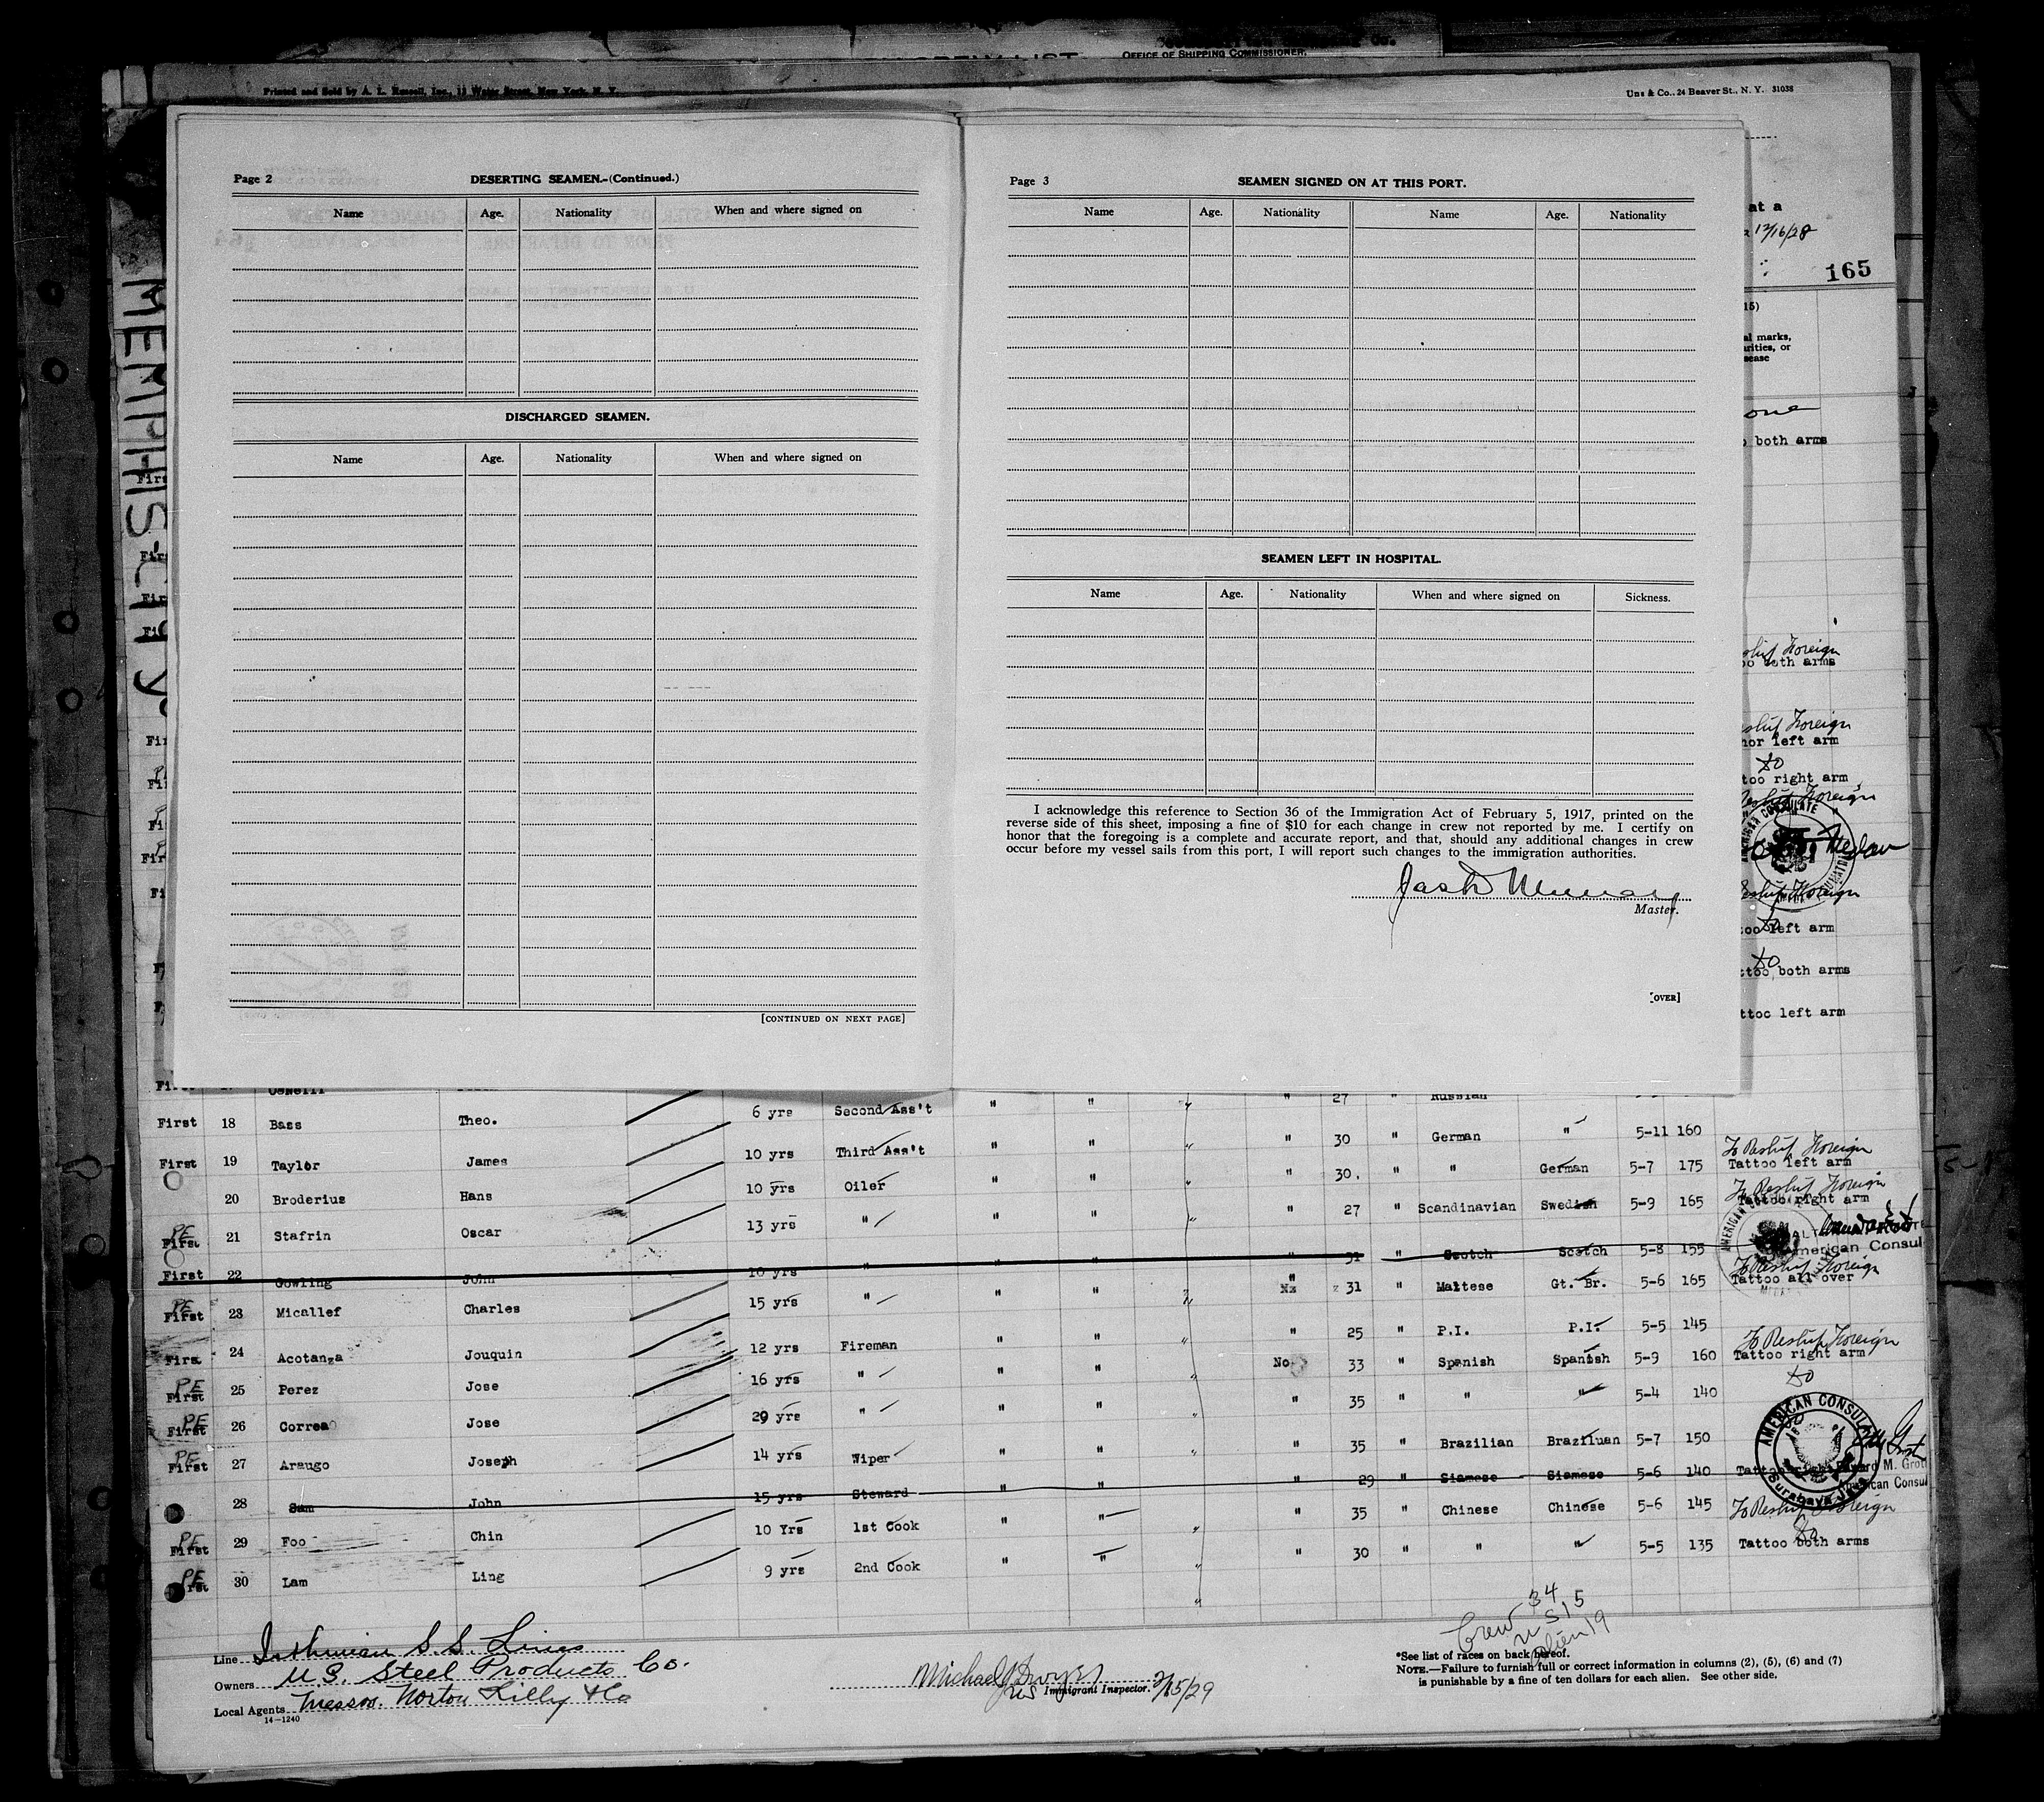 OFFICE OF SHIPPING COMMISSIONER.
Printed and Sold by A. L. Russell, Inc., 12 Water Street, New York, N. Y.
Uns & Co., 24 Beaver St., N. Y. 31038
at a
12/16/28
165
MEMPHIS CITY
Page 2 DESERTING SEAMEN.-(Continued.)
Name Age. Nationality When and where signed on
DISCHARGED SEAMEN.
Name Age. Nationality When and where signed on
[CONTINUED ON NEXT PAGE]
Page 3 SEAMEN SIGNED ON AT THIS PORT.
Name Age. Nationality Name Age. Nationality
SEAMEN LEFT IN HOSPITAL.
Name Age. Nationality When and where signed on Sickness.
I acknowledge this reference to Section 36 of the Immigration Act of February 5, 1917, printed on the
reverse side of this sheet, imposing a fine of $10 for each change in crew not reported by me. I certify on
honor that the foregoing is a complete and accurate report, and that, should any additional changes in crew
occur before my vessel sails from this port, I will report such changes to the immigration authorities.
Master.
[OVER]
15)
al marks,
arities, or
sease
both arms
Foreign
oo both arms
Foreign
hor left arm
too right arm
Foreign
AMERICAN CONSULATE
Foreign
too left arm
ttoo both arms
ttoo left arm
27 " Russian
First 18 Bass Theo. 6 yrs Second Ass't " " " " 30 " German " 5-11 160
First 19 Taylor James 10 yrs Third Ass't " " " " 30. " " German 5-7 175 To Reship Foreign
Tattoo left arm
20 Broderius Hans 10 yrs Oiler " " " " 27 " Scandinavian Swedish 5-9 165 To Reship Foreign
Tattoo right arm
PE
First 21 Stafrin Oscar 13 yrs " " " " " 31 " Scotch Scotch 5-8 155
AMERICAN
American Consul
First 22 Gowling John 10 yrs " " 31 " Maltese Gt. Br. 5-6 165 To Reship Foreign
Tattoo all over
PE
First 23 Micallef Charles 15 yrs " " " " " 25 " P.I. P.I. 5-5 145
Firs 24 Acotanza Jouquin 12 yrs Fireman " " " No 33 " Spanish Spanish 5-9 160 To Reship Foreign
Tattoo right arm
PE
First 25 Perez Jose 16 yrs " " " " " 35 " " 5-4 140
PE
First 26 Correa Jose 29 yrs " " " " " 35 " Brazilian Braziluan 5-7 150
AMERICAN CONSULA
PE
First 27 Araugo Joseph 14 yrs Wiper " " " " 29 " Siamese Siamese 5-6 140 Tattoo
American Consul
Surabaya Java
28 Sam John 15 yrs Steward " " " 35 " Chinese Chinese 5-6 145 To Reship Foreign
PE
First 29 Foo Chin 10 Yrs 1st Cook " " " " 30 " " " 5-5 135 Tattoo both arms
PE
First 30 Lam Ling 9 yrs 2nd Cook " " "
Crew 34
US 15
Alien 19
Line Isthmian S.S. Lines
Owners U.S. Steel Products Co.
Local Agents Messrs. Norton Lilly & Co
14-1240
Michael J Dwyer
Immigrant Inspector. 2/15/29
*See list of races on back hereof.
NOTE.—Failure to furnish full or correct information in columns (2), (5), (6) and (7)
is punishable by a fine of ten dollars for each alien. See other side.